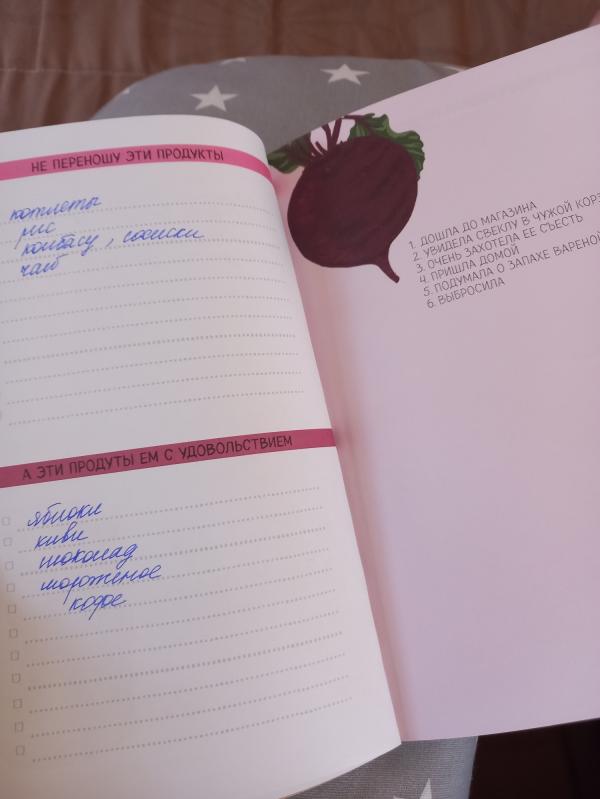 НЕ ПЕРЕНОШУ ЭТИ ПРОДУКТЫ
котлеты
рис
колбасу, сосиски
хлеб
А ЭТИ ПРОДУТЫ ЕМ С УДОВОЛЬСТВИЕМ
яблоки
киви
шоколад
мороженое
кофе
1. ДОШЛА ДО МАГАЗИНА
2. УВИДЕЛА СВЕКЛУ В ЧУЖОЙ КОРЗ
3. ОЧЕНЬ ЗАХОТЕЛА ЕЕ СЪЕСТЬ
4. ПРИШЛА ДОМОЙ
5. ПОДУМАЛА О ЗАПАХЕ ВАРЕНОЙ
6. ВЫБРОСИЛА